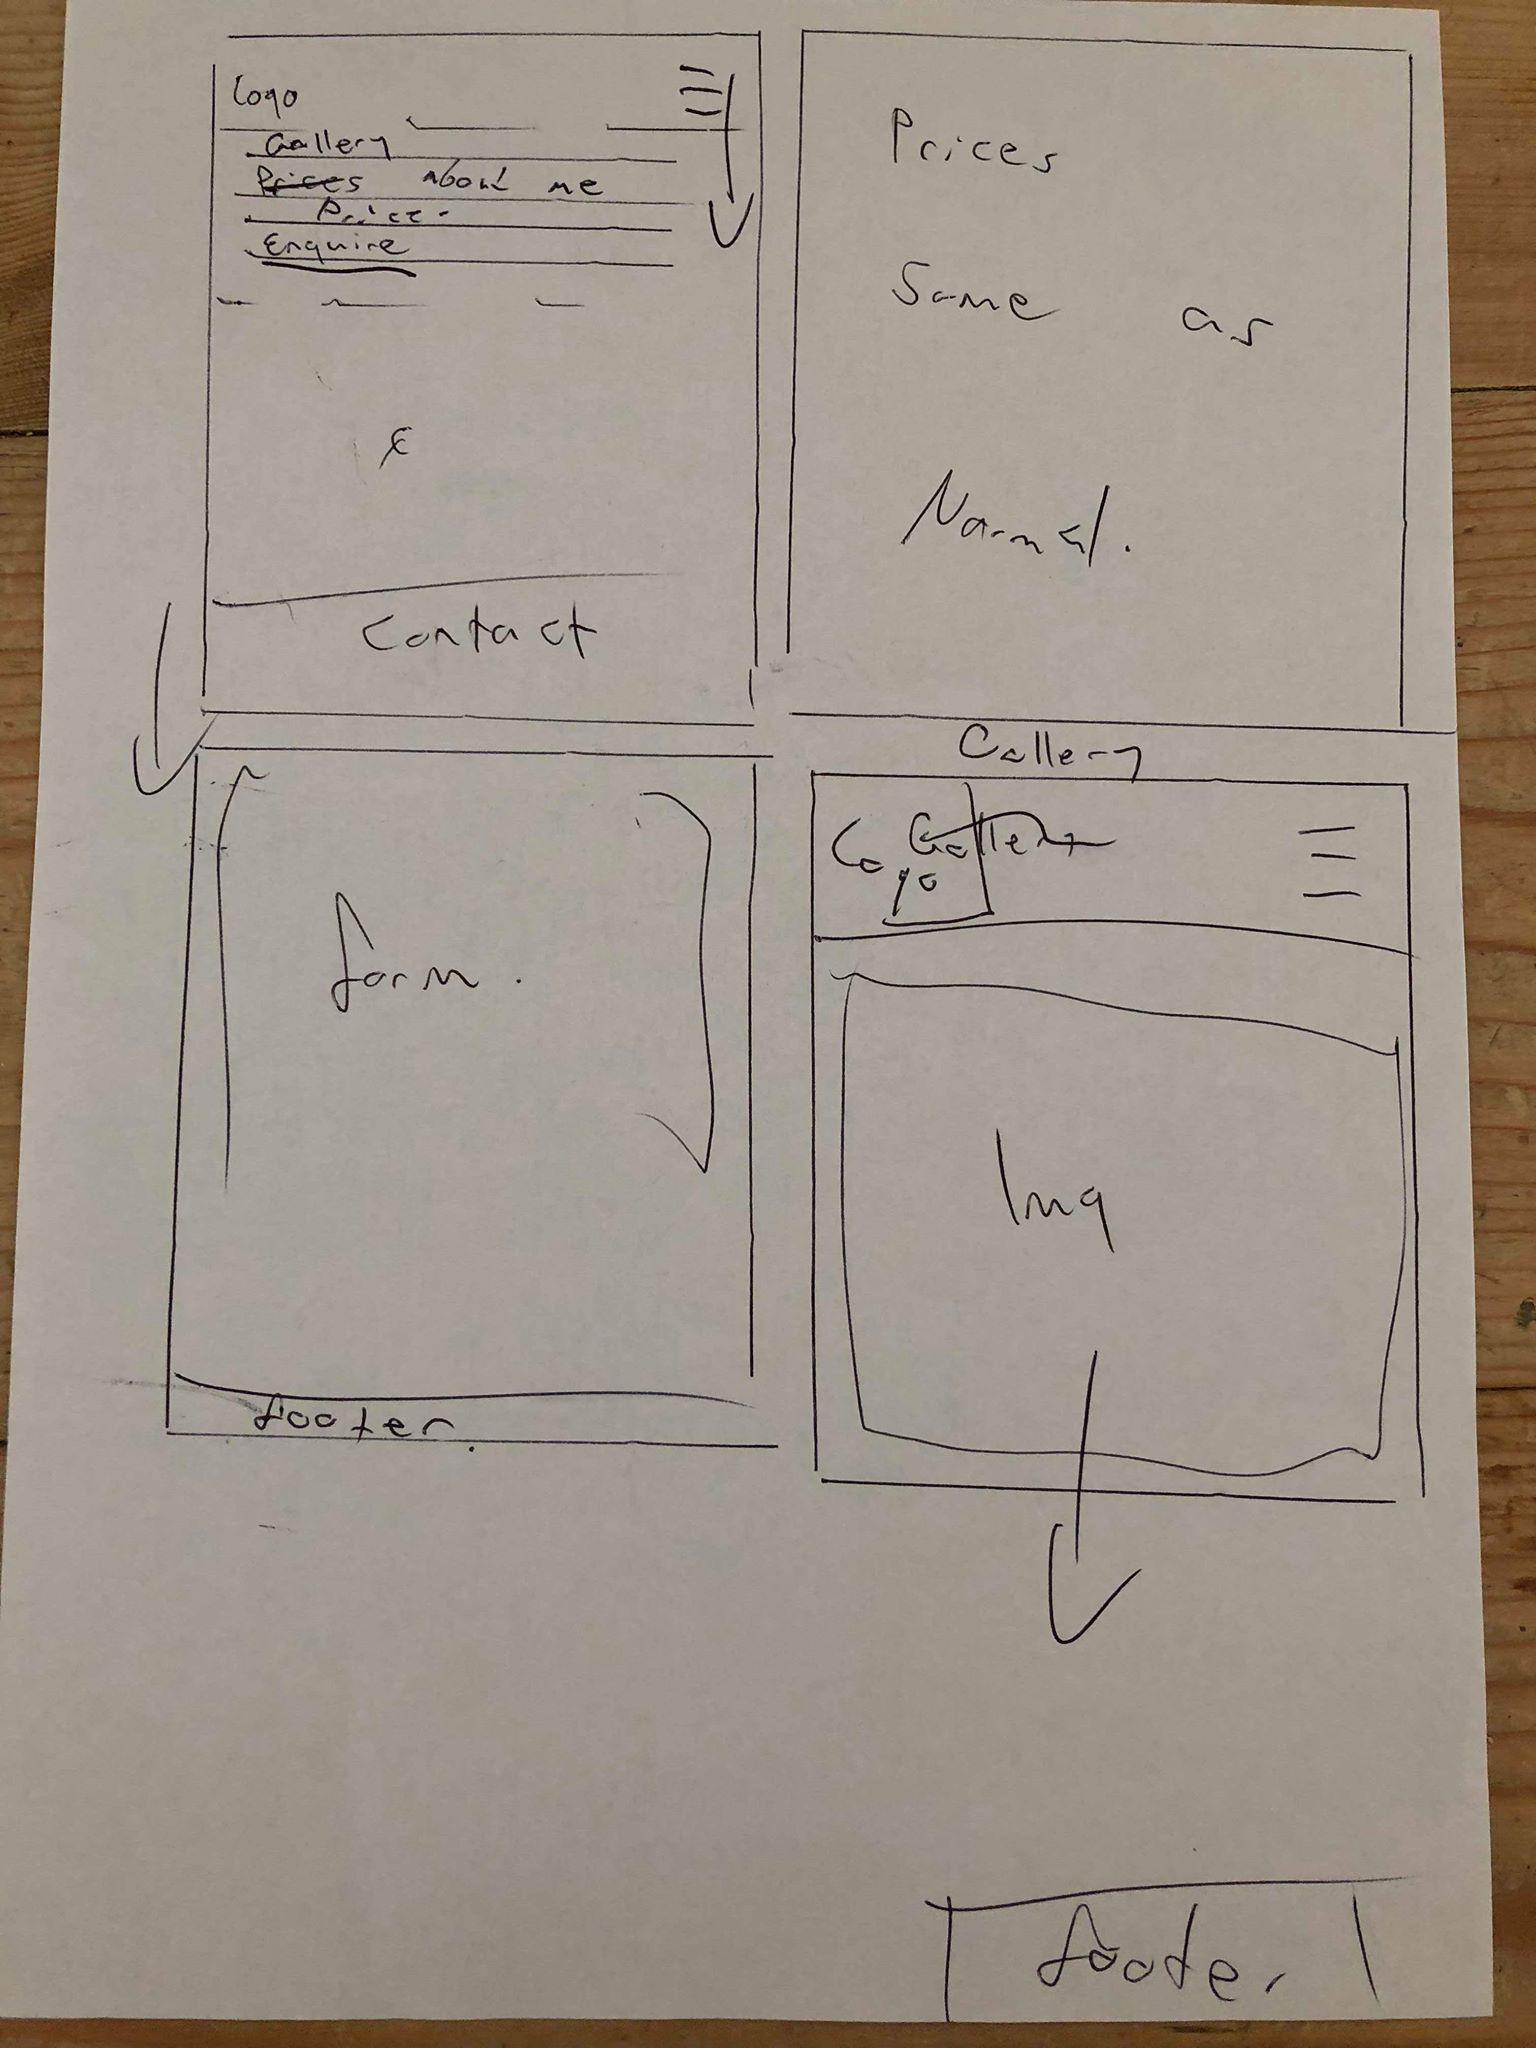 Logo
Gallery
Prices About me
Price
Enquire
Contact
Prices
Same as
Normal.
form.
footer.
Gallery
Logo Gallery
Img
footer